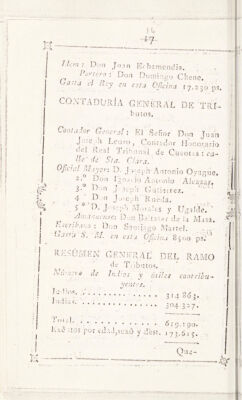 16
17
Idem: Don Juan Echamendia.
Portero: Don Domingo Chene.
Gasta el Rey en esta Oficina 17.230 ps.
CONTADURÍA GENERAL DE TRI-
butos.
Contador General: El Señor Don Juan
Joseph Leuro, Contador Honorario
del Real Tribunal de Cuentas: ca-
lle de Sta. Clara.
Oficial Mayor: D. Joseph Antonio Oyague.
2.º Don Ignacio Antonio Alcazar.
3.º Don Joseph Gutierrez.
4.º Don Joseph Rueda.
5.º D. Joseph Morales y Ugalde.
Amanuense: Don Baltasar de la Masa.
Escribano: Don Santiago Martel.
Gasta S. M. en esta Oficina 8500 ps.
RESÚMEN GENERAL DEL RAMO
de Tributos.
Número de Indios y útiles contribu-
yentes.
Indios. 314.863.
Indias. 304.327.
Total. 619.190.
por edad, sexô y dest. 173.615.
Que-